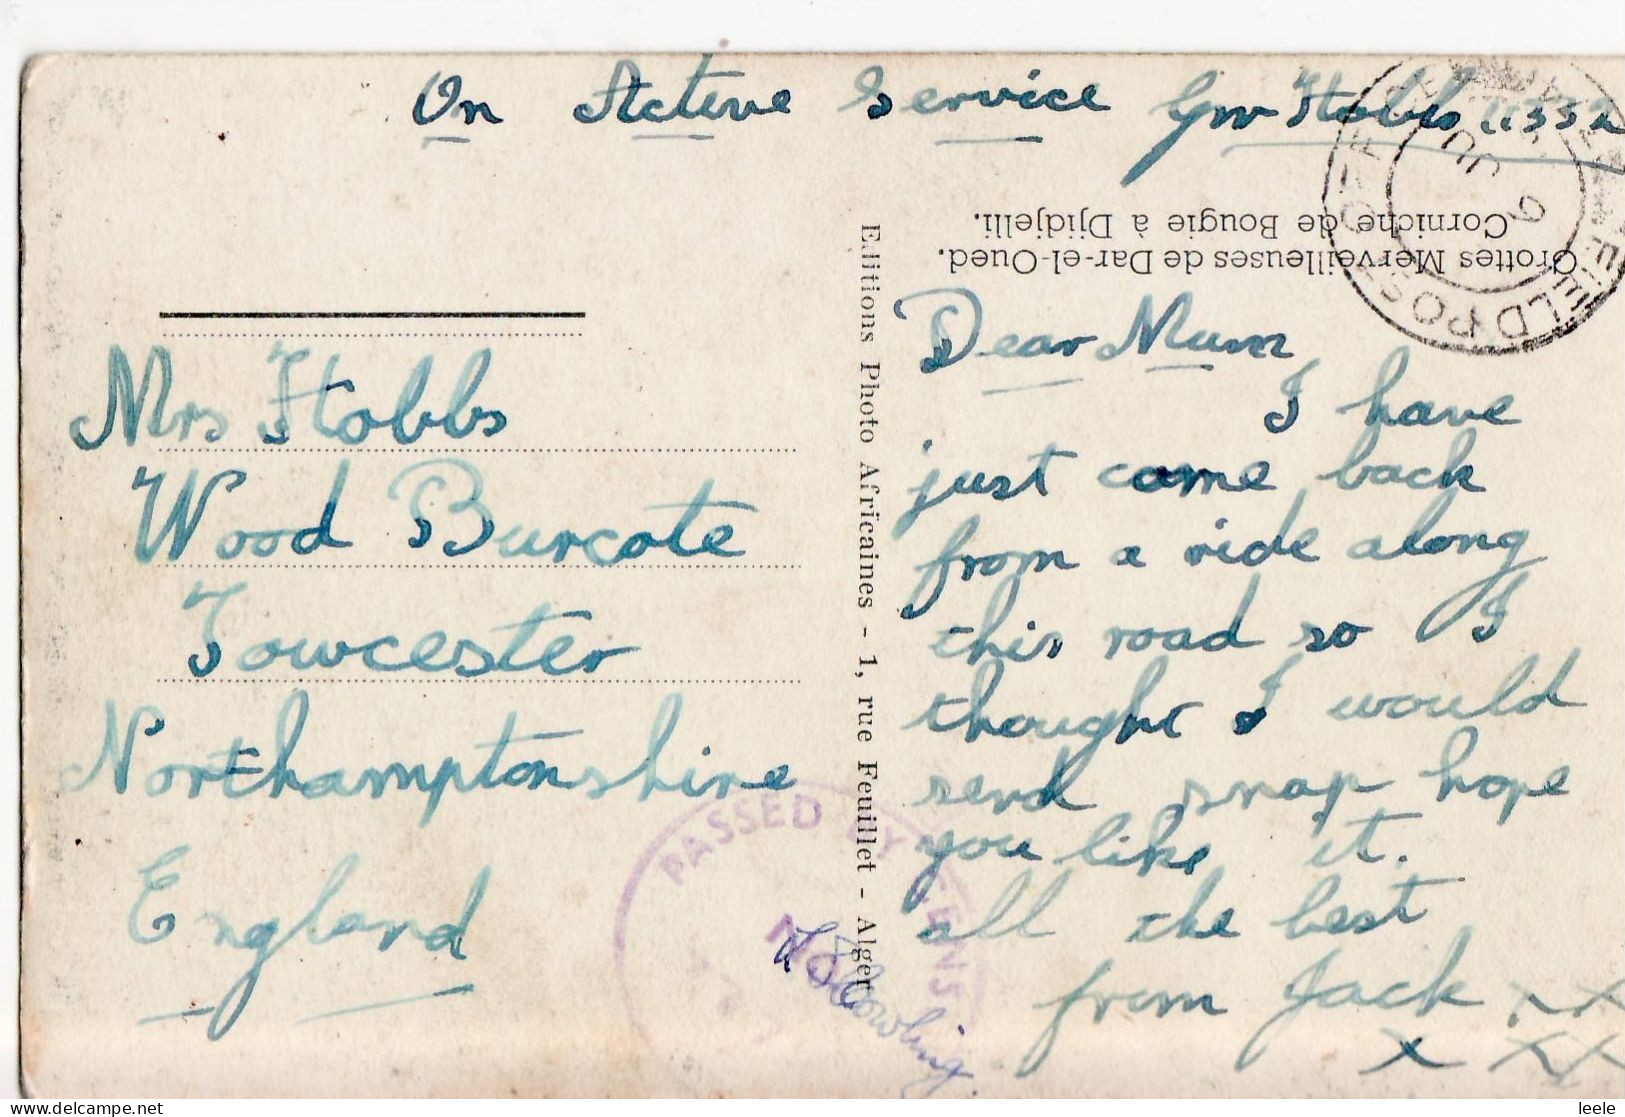 On Active Service Gnr Hobbs 11332
Grottes Merveilleuses de Dar-el-Oued.
Corniche de Bougie à Djidjelli.
FIELD POST OFFICE
9 JU
Mrs Hobbs
Wood Burcote
Towcester
Northamptonshire
England
Editions Photo Africaines - 1, rue Feuillet - Alger
Dear Mum
I have
just came back
from a ride along
this road so I
thought I would
send snap hope
you like it.
all the best
from Jack xx
x xx
PASSED BY CENS
Cowling.
www.delcampe.net
leele